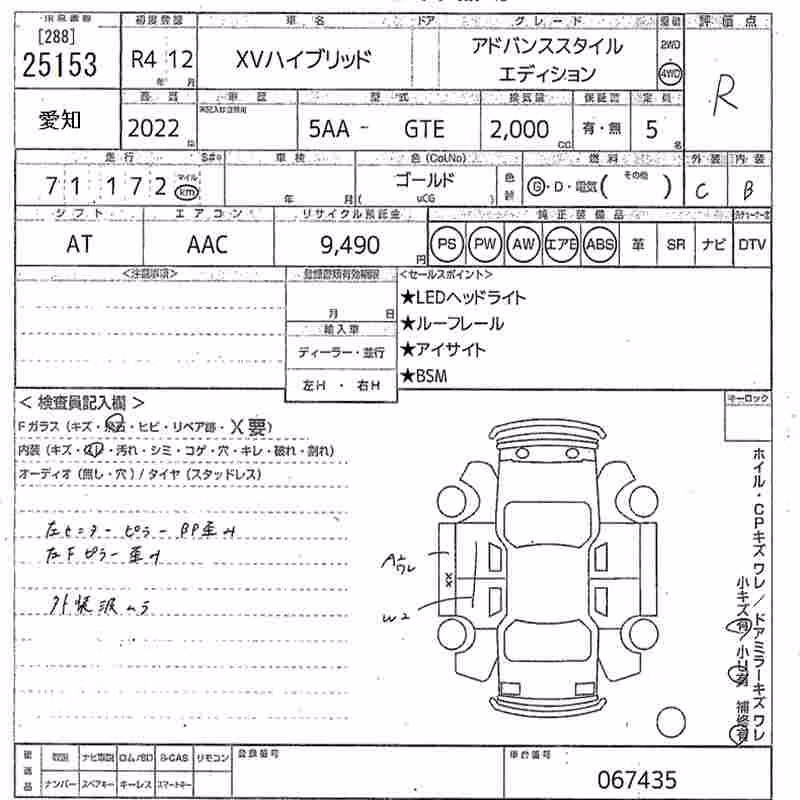 [288]
25153
初度登録
R4 12
年 月
車名
XVハイブリッド
ドア
グレード
アドバンススタイル
エディション
2WD
4WD
評価点
R
愛知
2022
年
型式
5AA - GTE
排気量
2,000
CC
保証書
有・無
定員
5
名
走行
71 172
マイル
km
車検
年 月
色 (Col.No)
ゴールド
(uCG)
色替
燃料
G・D・電気( その他 )
外装
C
内装
B
シフト
AT
エアコン
AAC
リサイクル預託金
9,490
円
純正装備品
PS PW AW エアB ABS 革 SR ナビ DTV
<注意事項>
登録書類有効期限
月 日
輸入車
ディーラー・並行
左H ・ 右H
<セールスポイント>
★LEDヘッドライト
★ルーフレール
★アイサイト
★BSM
< 検査員記入欄 >
Fガラス (キズ・飛石・ヒビ・リペア跡・X要)
内装 (キズ・スレ・汚れ・シミ・コゲ・穴・キレ・破れ・割れ)
オーディオ (無し・穴) / タイヤ (スタッドレス)
左センターピラーBP歪み
左Fピラー歪み
外装汲ムラ
キーロック
A2
ワレ
XX
W2
ホイル・CPキズワレ / ドアミラーキズワレ
小キズ有 / 小凹有 補修有
取説 ナビ取説 ロム/SD B-CAS リモコン
ナンバー スペアキー キーレス スマートキー
登録番号
車台番号
067435